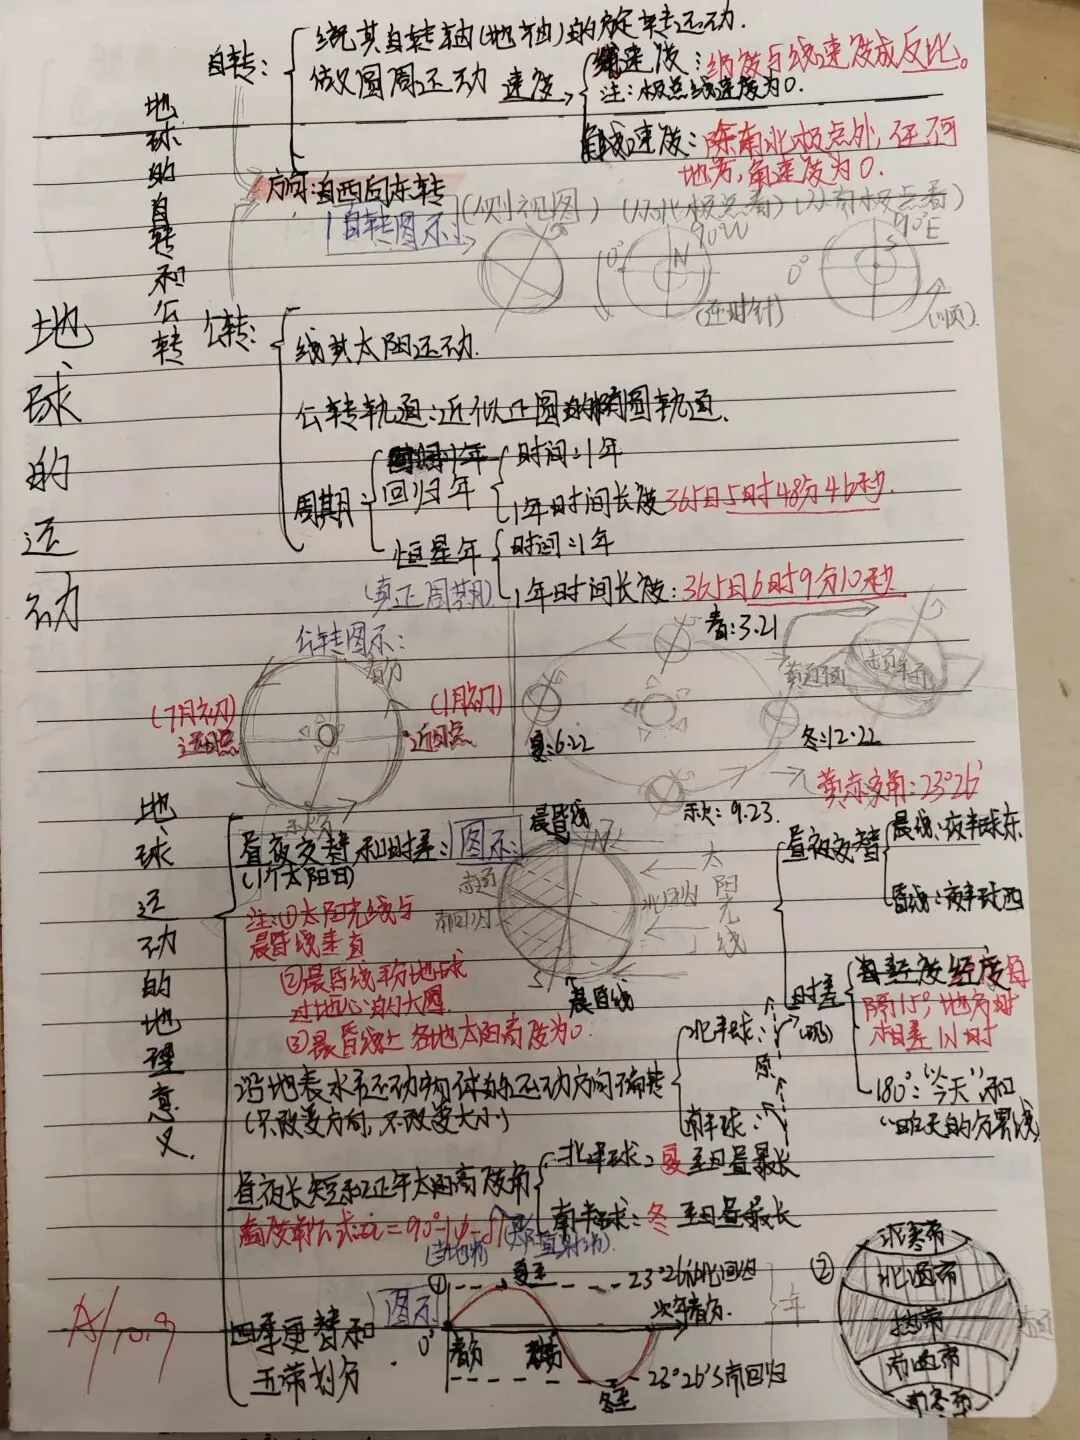 地球的运动
地球的自转和公转
自转：
绕其自转轴(地轴)的旋转运动.
做圆周运动 速度
线速度：纬度与线速度成反比。
注：极点线速度为0.
角速度：除南北极点外，任何
地方，角速度为0.
方向：自西向东转
自转图示：
(侧视图) (从北极点看) (从南极点看)
90°W
0°
N
(逆时针)
90°E
0°
S
(顺).
公转：
绕其太阳运动.
公转轨道：近似正圆的椭圆轨道.
周期：
回归年
时间：1年
1年时间长度365日5时48分46秒.
恒星年
(真正周期)
时间：1年
1年时间长度：365日6时9分10秒.
公转图示：
春分
(7月初)
远日点
(1月初)
近日点
秋分
春：3.21
夏：6.22
冬：12.22
秋：9.23.
黄道面
赤道平面
黄赤交角：23°26′
地球运动的地理意义.
昼夜交替和时差：
(1个太阳日)
图示：
注：①太阳光线与
晨昏线垂直
②晨昏线平分地球
对地心的大圆.
③晨昏线上各地太阳高度为0.
晨昏线
N
赤道
南回归
北回归
太阳光线
S
晨昏线
昼夜交替
晨线：夜半球东
昏线：夜半球西
时差
经度每
隔15°，地方时
相差1小时
180°：“今天”和
“昨天的分界线
沿地表水平运动物体的运动方向偏转
(只改变方向，不改变大小)
北半球：
原
南半球：
昼夜长短和正午太阳高度角
北半球：夏至日昼最长
南半球：冬至日昼最长
(当地纬)
(太阳直射纬).
四季更替和
五带划分
图示
①
0°
夏至
23°26′N北回归
春分
秋分
次年春分.
冬至
23°26′S南回归
年
②
北寒带
北温带
热带
南温带
南寒带
赤道
A/10.9